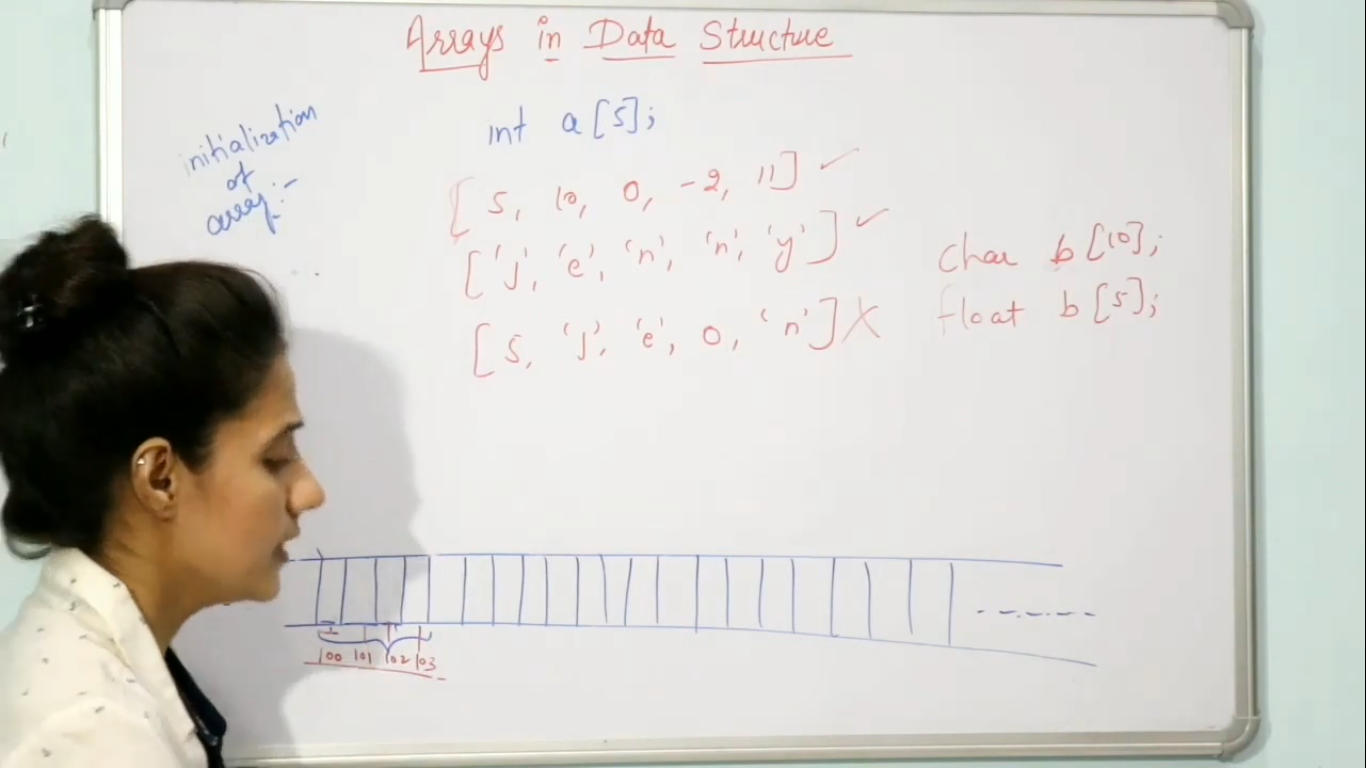 Arrays in Data Structure
initialization
of
array:-
int a[5];
[5, 10, 0, -2, 11] ✓
['j', 'e', 'n', 'n', 'y'] ✓
[5, 'j', 'e', 0, 'n'] X
char b[10];
float b[5];
100 101 102 103